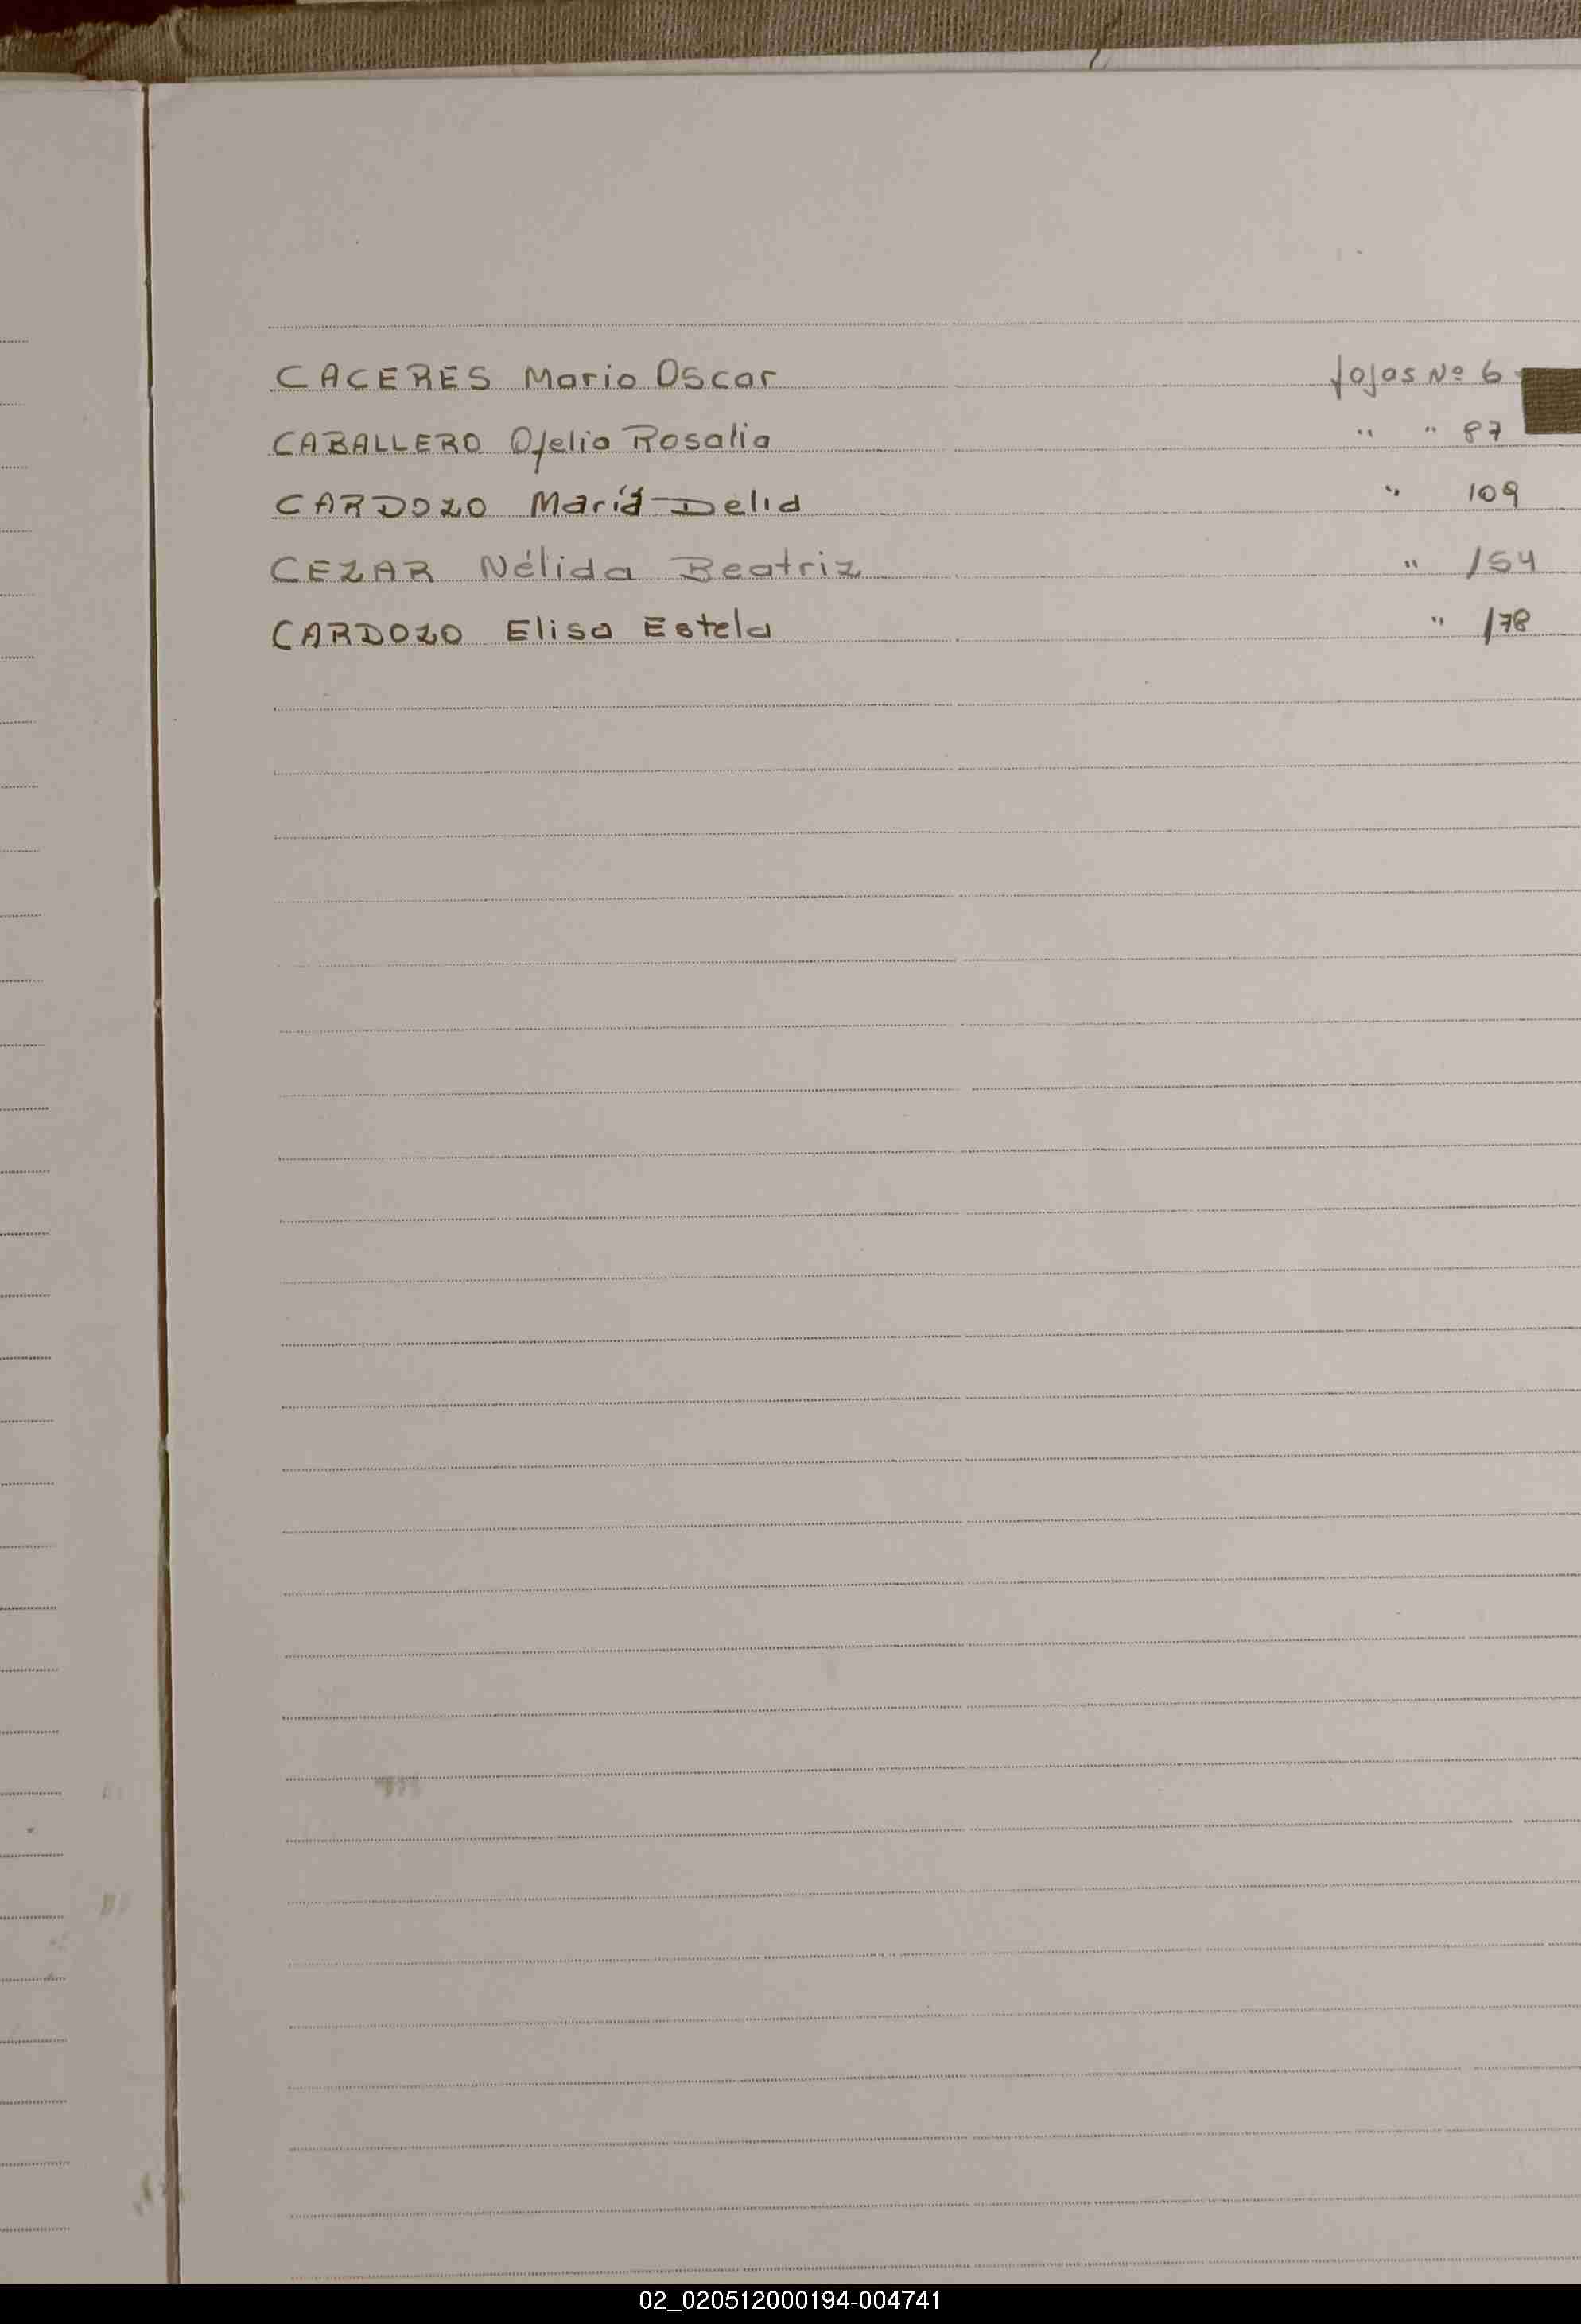 CACERES Mario Oscar fojas Nº 6
CABALLERO Ofelia Rosalia " " 87
CARDOZO María Delia " 109
CEZAR Nélida Beatriz " 154
CARDOZO Elisa Estela " 178
02_020512000194-004741